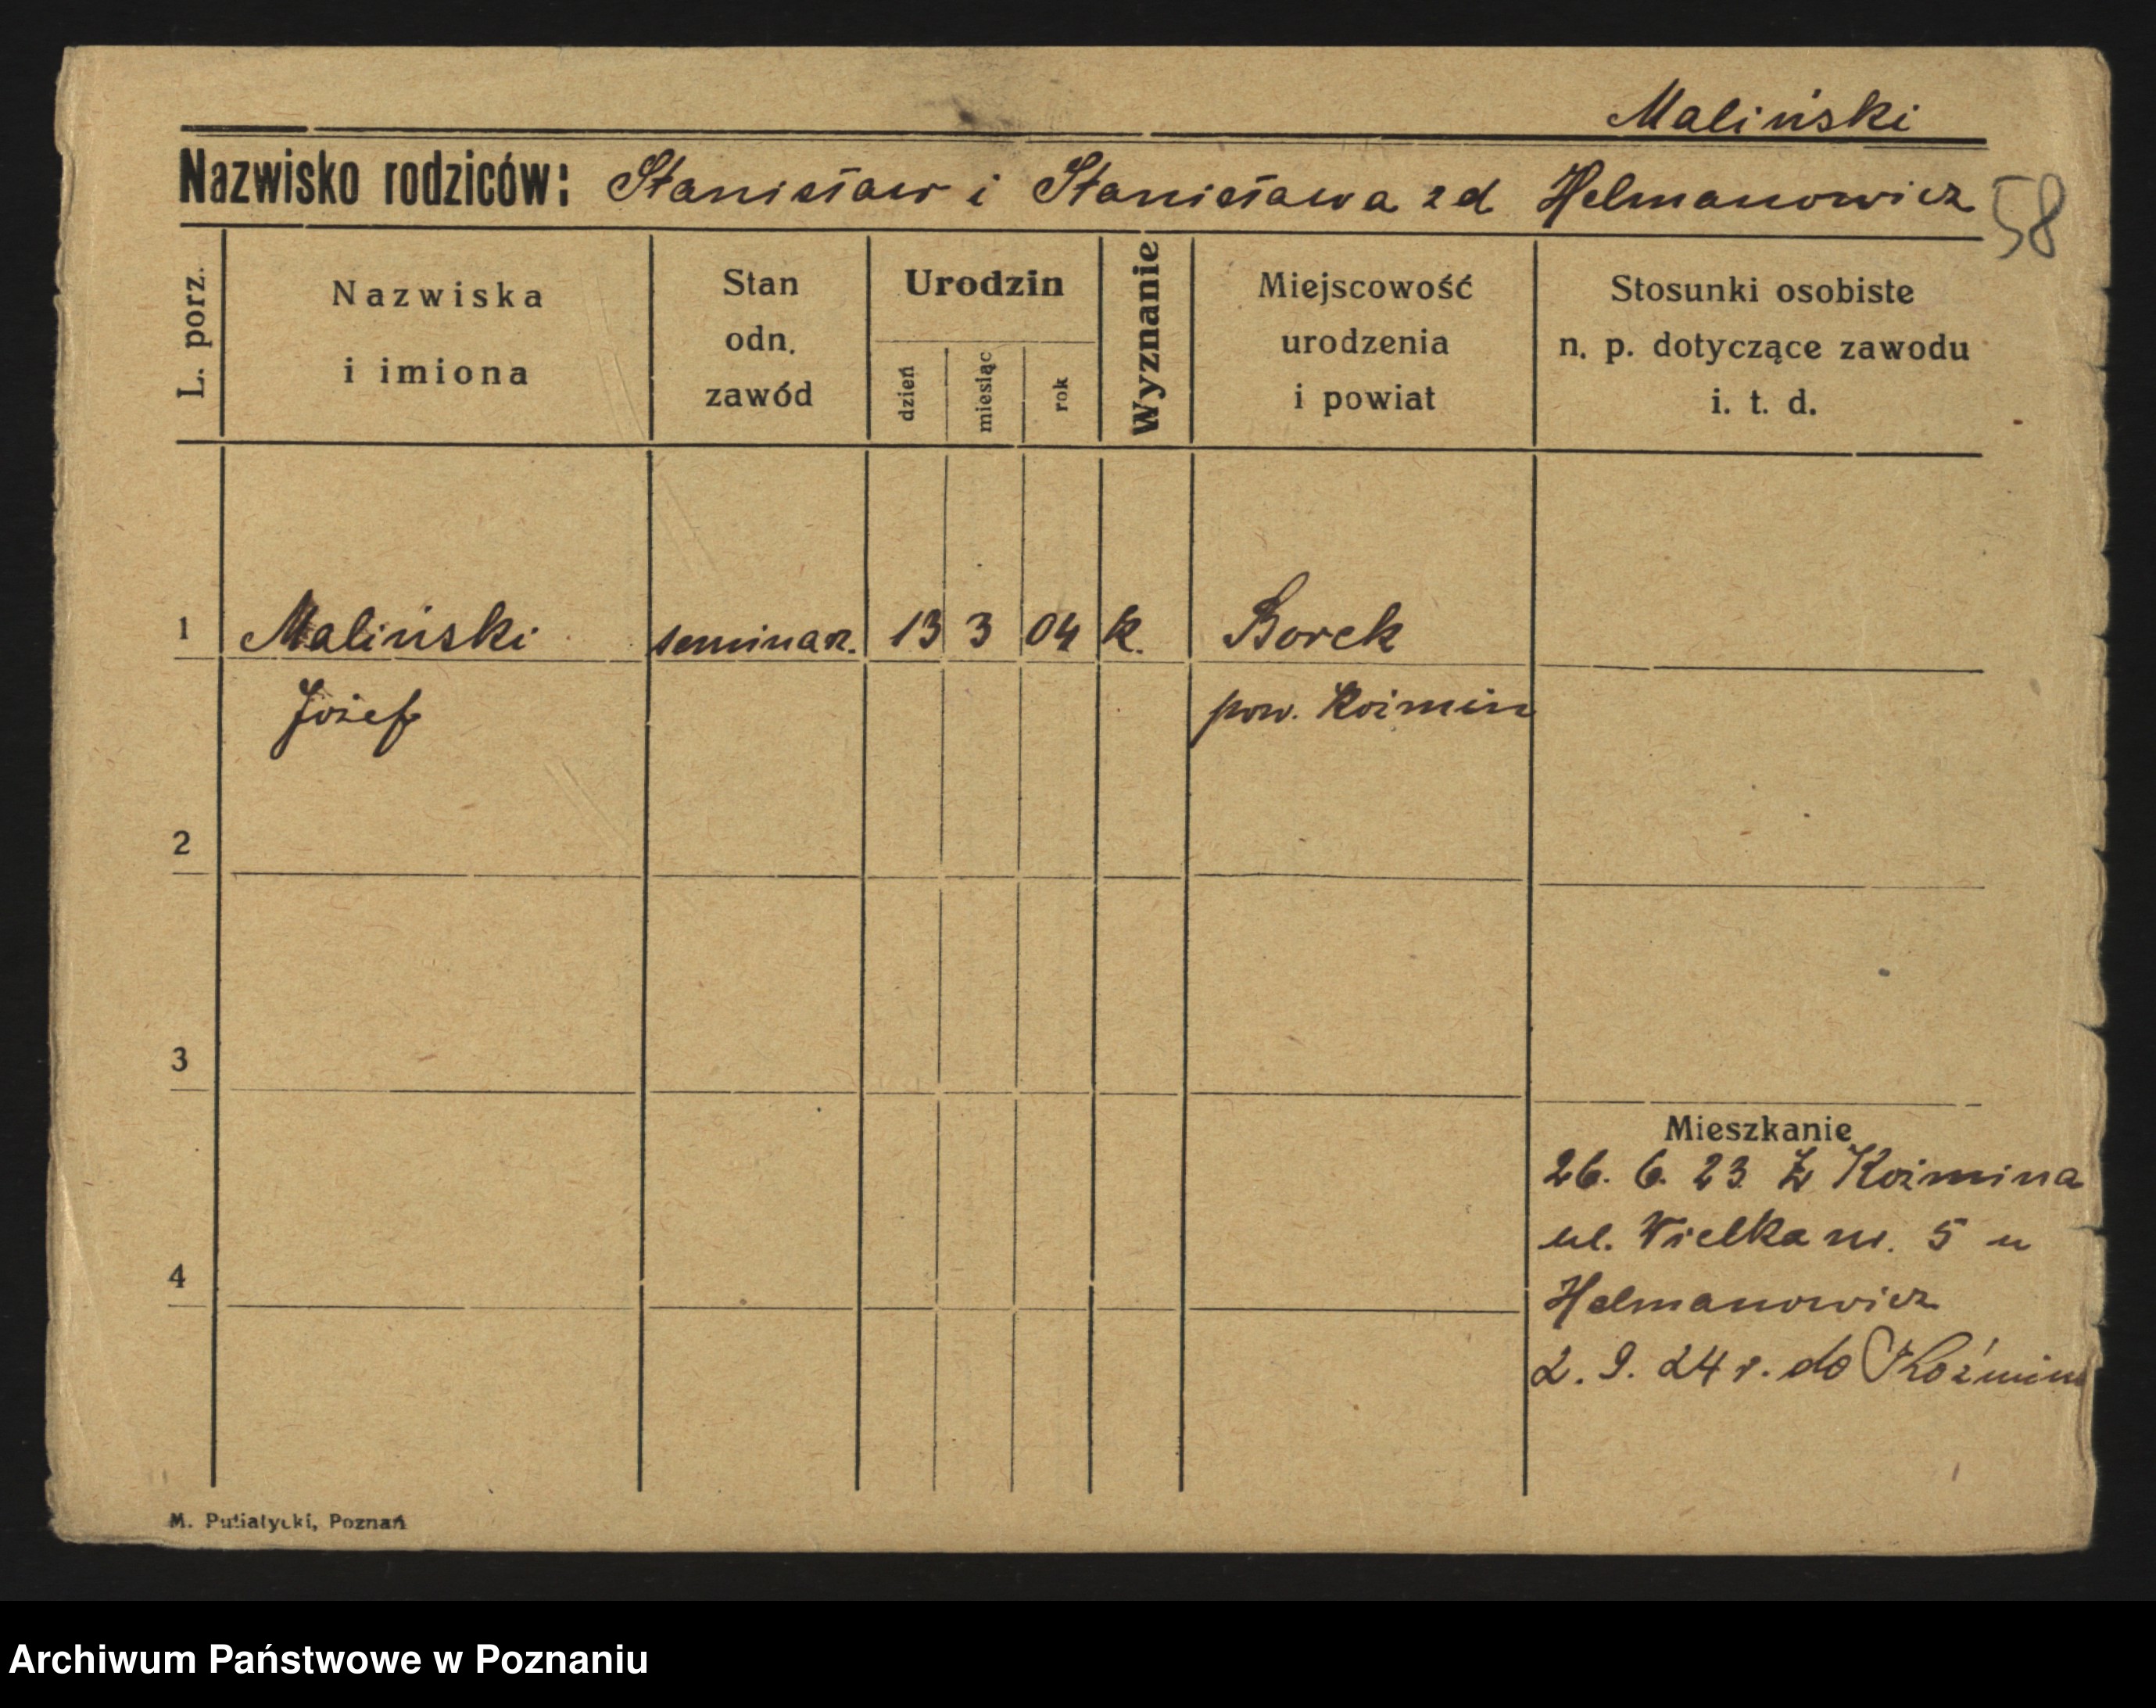 Maliński
Nazwisko rodziców: Stanisław i Stanisława zd Helmanowicz
58
L. porz.
Nazwiska
i imiona
Stan
odn.
zawód
Urodzin
dzień
miesiąc
rok
Wyznanie
Miejscowość
urodzenia
i powiat
Stosunki osobiste
n. p. dotyczące zawodu
i. t. d.
1 Maliński seminar. 13 3 04 k. Borek
Józef pow. Koźmin
2
3
Mieszkanie
26. 6. 23 Z Koźmina
ul. Wielka nr. 5 u
4
Helmanowicz
2. 9. 24 r. do Koźmina
M. Putiatycki, Poznań
Archiwum Państwowe w Poznaniu